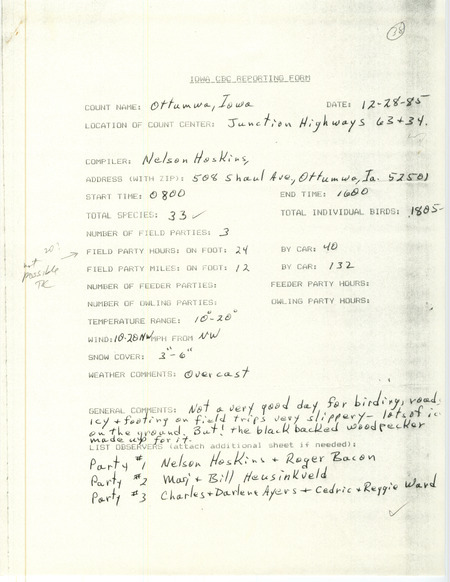 18
IOWA CBC REPORTING FORM
COUNT NAME: Ottumwa, Iowa DATE: 12-28-85
LOCATION OF COUNT CENTER: Junction Highways 63+34.
COMPILER: Nelson Hoskins,
ADDRESS (WITH ZIP): 508 Shaul Ave, Ottumwa, Ia. 52501
START TIME: 0800 END TIME: 1600
TOTAL SPECIES: 33 ✓ TOTAL INDIVIDUAL BIRDS: 1805-
NUMBER OF FIELD PARTIES: 3
FIELD PARTY HOURS: ON FOOT: 24 BY CAR: 40
not possible
FIELD PARTY MILES: ON FOOT: 12 BY CAR: 132
NUMBER OF FEEDER PARTIES: FEEDER PARTY HOURS:
NUMBER OF OWLING PARTIES: OWLING PARTY HOURS:
TEMPERATURE RANGE: 10°-20°
WIND: 10-20NW MPH FROM NW
SNOW COVER: 3"-6"
WEATHER COMMENTS: Overcast
GENERAL COMMENTS: Not a very good day for birding, roads
icy + footing on field trips very slippery - lots of ic
on the ground. But! the black backed woodpecker
made up for it.
LIST OBSERVERS (attach additional sheet if needed):
Party #1 Nelson Hoskins + Roger Bacon
Party #2 Marj + Bill Heusinkveld
Party #3 Charles+Darlene Ayers + Cedric + Reggie Ward